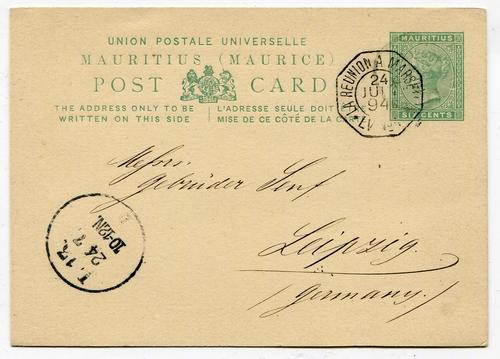 UNION POSTALE UNIVERSELLE
MAURITIUS (MAURICE)
POST CARD
THE ADDRESS ONLY TO BE WRITTEN ON THIS SIDE
L'ADRESSE SEULE DOIT
MISE DE CE CÔTÉ DE LA
MAURITIUS
SIX CENTS
LA REUNION A MARSEILLE
24
JUIL
94
LV No
Messrs
Gebrüder Senf
Leipzig.
(Germany.)
24 7.
10-12N.